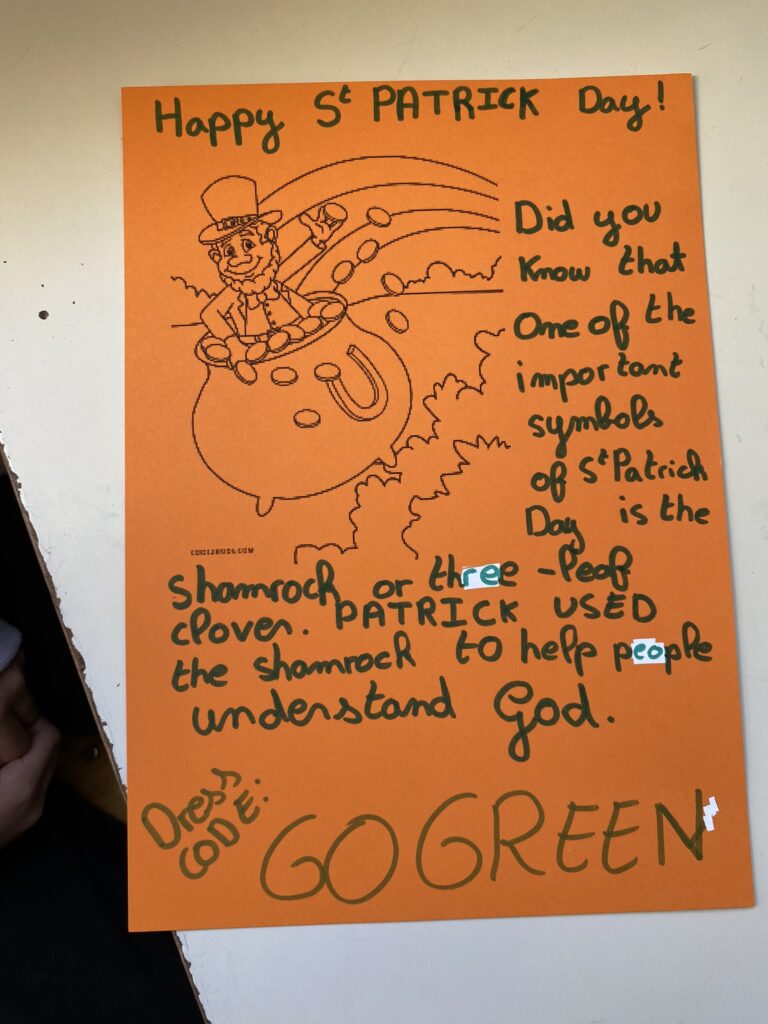 Happy St PATRICK Day!
Did you
Know that
One of the
important
symbols
of St Patrick
Day is the
shamrock or three-leaf
clover. PATRICK USED
the shamrock to help people
understand God.
Dress
CODE:
GO GREEN